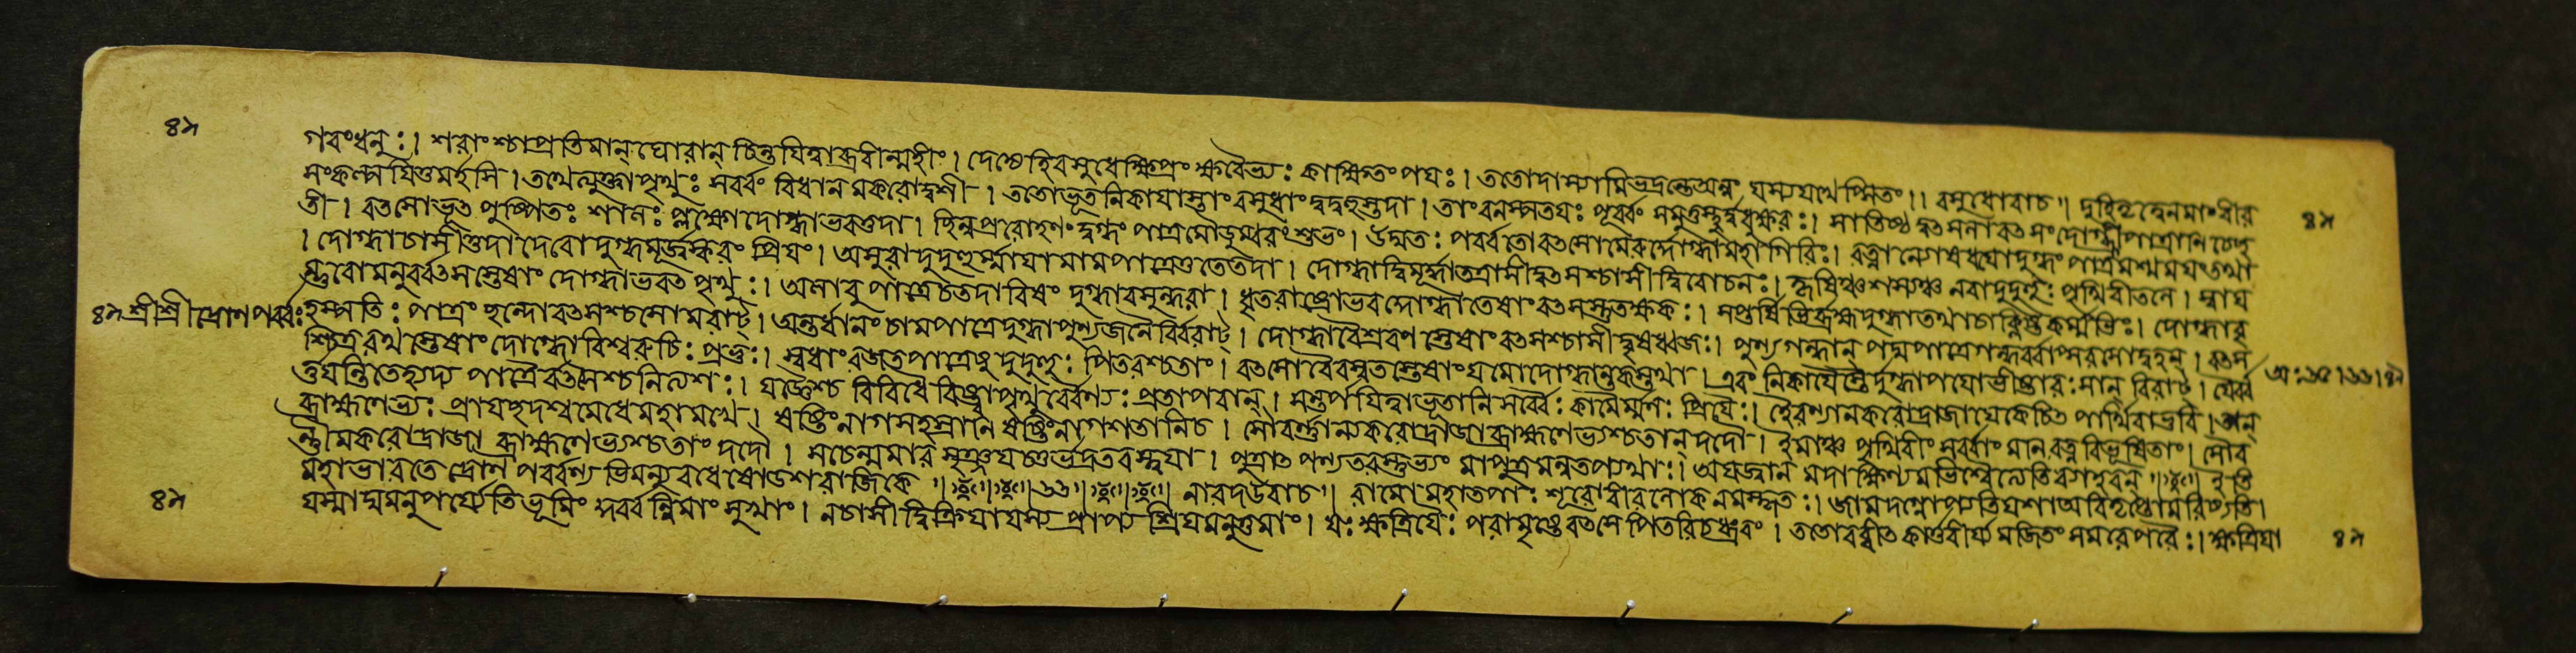 ৪৯
গবংধনুঃ। শরাংশ্চাপ্রতিমান্ ঘোরান্ চিন্তযিত্বাব্রবীন্মহীং। দেহ্যেহিবসুধেক্ষিপ্রং ক্ষরৈভ্যঃ কাঙ্ক্ষিতংপযঃ। ততোদাস্যামিভদ্রন্তেঅন্নং যস্যযথেপ্সিতং।। বসুধোবাচ।। দুহিতৃত্বেনমাংবীর
সংকল্পযিতুমর্হসি। তথেত্যুক্ত্বাপৃথুঃ সর্ব্বং বিধানমকরোদ্বশী। ততোভূতনিকাযাস্তাং বসুধাং দুদুহুস্তদা। তাং বনস্পতযঃ পূর্ব্বং সমুত্তস্থুর্দুধুক্ষবঃ। সাতিষ্ঠদ্বৎসলাবৎসংদোগ্ধৃপাত্রানিচেচ্ছ ৪৯
তী। বৎসোভূৎ পুষ্পিতঃ শালঃ প্লক্ষোদোগ্ধাভবত্তদা। ছিন্নপ্ররোহণং দুগ্ধং পাত্রমৌডুম্বরংশুভং। উদযতঃ পর্ব্বতোবৎসোমেরুর্দোগ্ধামহাগিরিঃ। রত্নান্যোষধযোদুগ্ধং পাত্রমশ্মমযংতথা
। দোগ্ধাচাসীত্তদাদেবোদুগ্ধমূর্জ্জস্করং প্রিযং। অসুরাদুদুহুর্ম্মাযামামপাত্রেতুতেতদা। দোগ্ধাদ্বিমূর্দ্ধাতত্রাসীদ্বৎসশ্চাসীদ্বিরোচনঃ। কৃষিঞ্চশস্যঞ্চ নরাদুদুহুঃ পৃথিবীতলে। স্বায
ম্ভুবোমনুর্ব্বৎসস্তেষাং দোগ্ধাভবৎপৃথুঃ। অলাবুপাত্রেচতদাবিষং দুগ্ধাবসুন্ধরা। ধৃতরাষ্ট্রোভবদ্দোগ্ধাতেষাং বৎসস্তুতক্ষকঃ। সপ্তর্ষিভির্ব্রহ্মদুগ্ধাতথাচাক্লিষ্টকর্ম্মভিঃ। দোগ্ধাবৃ
৪৯ শ্রীশ্রীদ্রোণপর্ব্বঃ হস্পতিঃ পাত্রং ছন্দোবৎসশ্চসোমরাট্। অন্তর্ধানং চামপাত্রেদুগ্ধাপুণ্যজনৈর্বিরাট্। দোগ্ধাবৈশ্রবণস্তেষাং বৎসশ্চাসীদ্বৃষধ্বজঃ। পুণ্যগন্ধান্ পদ্মপাত্রেগন্ধর্ব্বাপ্সরসোদুহন্। বৎস
শ্চিত্ররথস্তেষাং দোগ্ধোবিশ্বরুচিঃ প্রভুঃ। স্বধাংরজতপাত্রেষু দুদুহুঃ পিতরশ্চতাং। বৎসোবৈবস্বতস্তেষাং যমোদোগ্ধান্তকস্তথা। এবং নিকাযৈস্তৈর্দুগ্ধাপযোভীষ্টং বিরাট্। যৈর্ব্ব অঃ
র্ত্তযন্তিতেহ্যদ্য পাত্রৈর্বৎসৈশ্চনিত্যশঃ। যজ্ঞৈশ্চ বিবিধৈরিষ্ট্বাপৃথুর্বৈণ্যঃ প্রতাপবান্। সন্তর্পযিত্বাভূতানিসর্ব্বৈঃ কামৈর্ম্মনঃ প্রিযৈঃ। হৈরণ্যানকরোদ্রাজাযেকেচিৎ পার্থিবাভুবি। তান্
ব্রাহ্মণেভ্যঃ প্রাযচ্ছদশ্বমেধেমহামখে। ষষ্টিংনাগসহস্রানি ষষ্টিংনাগশতানিচ। সৌবর্ণানকরোদ্রাজাব্রাহ্মণেভ্যশ্চতান্ দদৌ। ইমাঞ্চ পৃথিবীং সর্ব্বাং মানরত্নবিভূষিতাং। সৌব
র্ণীমকরোদ্রাজা ব্রাহ্মণেভ্যশ্চতাং দদৌ। সচেন্মমার সৃঞ্জয চতুর্ভদ্রতরস্ত্বযা। পুত্রাৎ পুণ্যতরস্তুভ্যং মাপুত্রমনুতপ্যথাঃ। অযজ্বান মদাক্ষিণ্যমভিশ্বৈত্যেতিব্যাহরন্।। ইতি
মহাভারতে দ্রোণপর্ব্বণ্যভিমন্যুবধেষোডশরাজিকে।। ৬৬।। নারদউবাচ।। রামোমহাতপাঃ শূরোবীরলোকনমস্কৃতঃ। জামদগ্ন্যোপ্যতিযশাঅবিতৃপ্তোমরিষ্যতি।
৪৯ যস্মাদ্যমনুপর্য্যেতিভূমিং কুর্ব্বন্নিমাং সুখাং। নচাসীদ্বিক্রিযাযস্য প্রাপ্যশ্রিযমনুত্তমাং। যঃ ক্ষত্রিযৈঃ পরামৃষ্টেবৎসেপিতরি। ততোবধীৎকার্ত্তবীর্য্যমজিতং সমরেপরৈঃ। ক্ষত্রিযা ৪৯